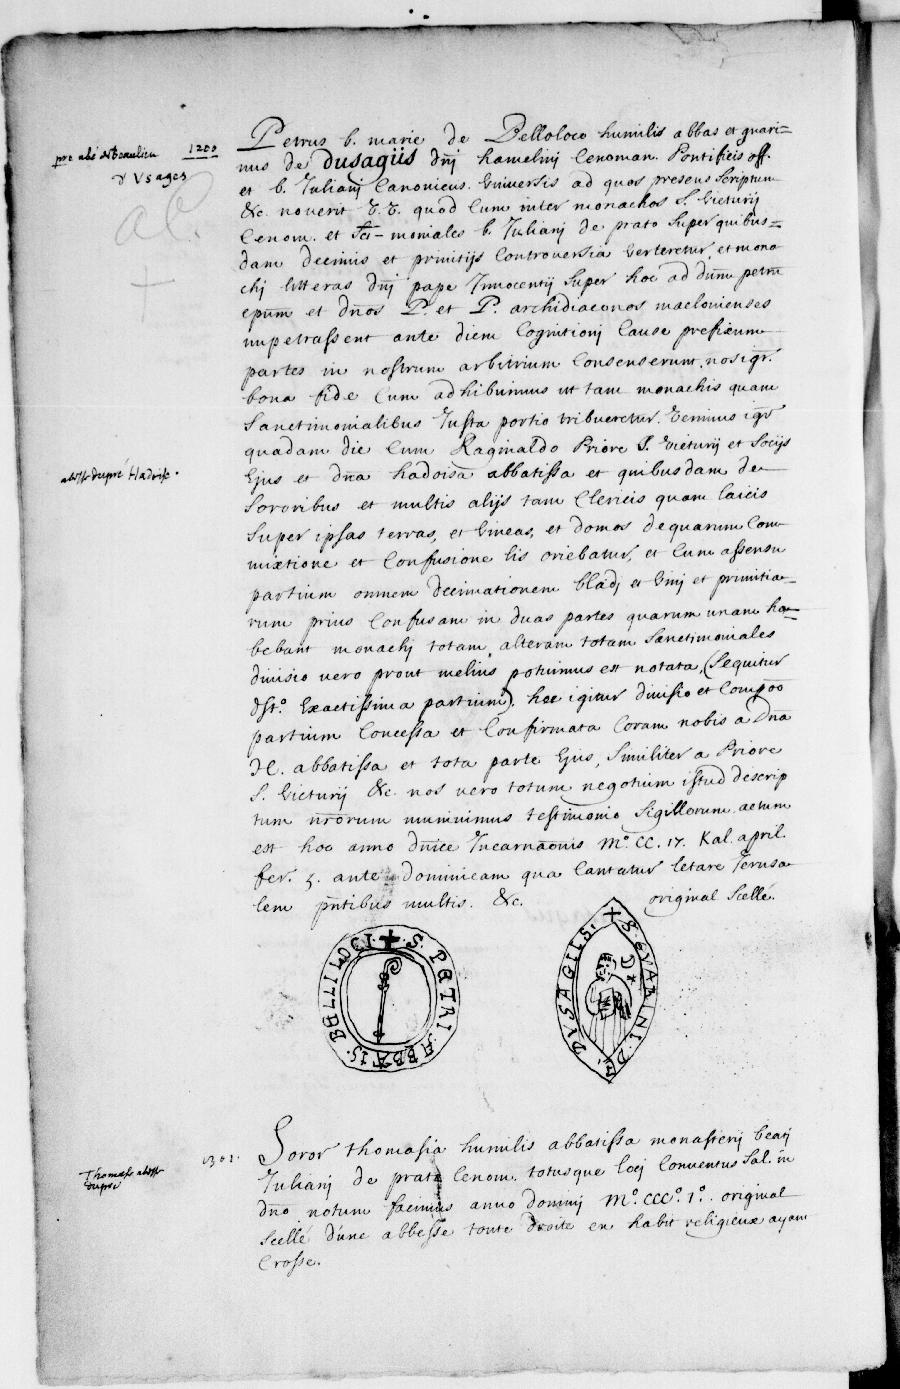 pre abé de Beaulieu 1200
& Vsages
al.
Petrus b. marie de Belloloco humilis abbas et guari=
nus de dusagiis dnj hamelinj Cenoman. Pontificis off.
et b. Julianj Canonicus. Universis ad quos presens scriptum
&c. noverit V. V. quod Cum inter monachos S. Victurij
Cenom. et scī-moniales b. Julianj de prato super quibus=
dam decimis et primitijs Controversia Verteretur, et mona
chj litteras dnj pape Innocentij super hoc ad dnm petrū
epum et dños P. et P. archidiaconos maclouienses
impetrassent ante diem Cognitionj Cause prefixum
partes in nostrum arbitrium Consenserunt. nos igr.
bona fide Cum adhibuimus ut tam monachis quam
Sanctimonialibus Justa portio tribueretur. Venimus igr
quadam die Cum Raginaldo Priore S. Victurij et Socijs
Ejus et dña hadoisa abbatissa et quibusdam de
Sororibus et multis alijs tam Clericis quam laicis
super ipsas terras, et Vineas, et domos de quarum Com
mixtione et Confusione lis oriebatur, et Cum assensu
partium omnem decimationem bladj et Vinj et primitia=
rum prius Confusam in duas partes quarum unam ha=
bebant monachj totam, alteram totam Sanctimoniales
divisio vero prout melius potuimus est notata, (Sequitur
dsto. Exactissima partium). hec igitur divisio et Compoō
partium Concessa et Confirmata Coram nobis a Dña
H. abbatissa et tota parte Ejus, Similiter a Priore
S. Victurij &c. nos vero totum negotium istud descrip
tum nrōrum munimus testimonio Sigillorum. actum
est hoc anno dnice Incarnaōnis Mº. CC. 17. Kal. april.
fer. 5. ante dominicam qua Cantatur letare Jerusa
lem pñtibus multis. &c. original Scellé.
abbsse du pré Hadvise.
+ S. PETRI ABBATIS BELLILOCI
+ S. GVARINI. D DVSAGIIS.
Thomasse abbsse
dupré
1301.
Soror thomasia humilis abbatissa monasterij beatj
Julianj de prato Cenom. totusque locj Conventus Sal. in
dño notum facimus anno dominj Mº. CCCº. 1º. original
Scellé d'une abbesse toute droite en habit religieux ayant
Crosse.